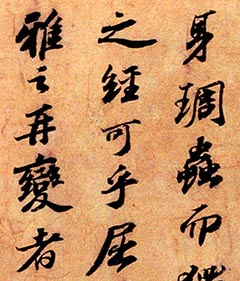 身琱蟲而
之經可乎屈
雅之再變者